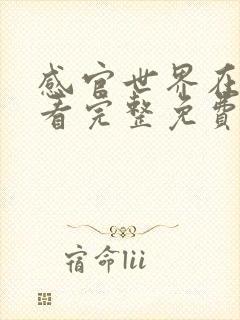 感官世界在
看完整免費
宿命lii